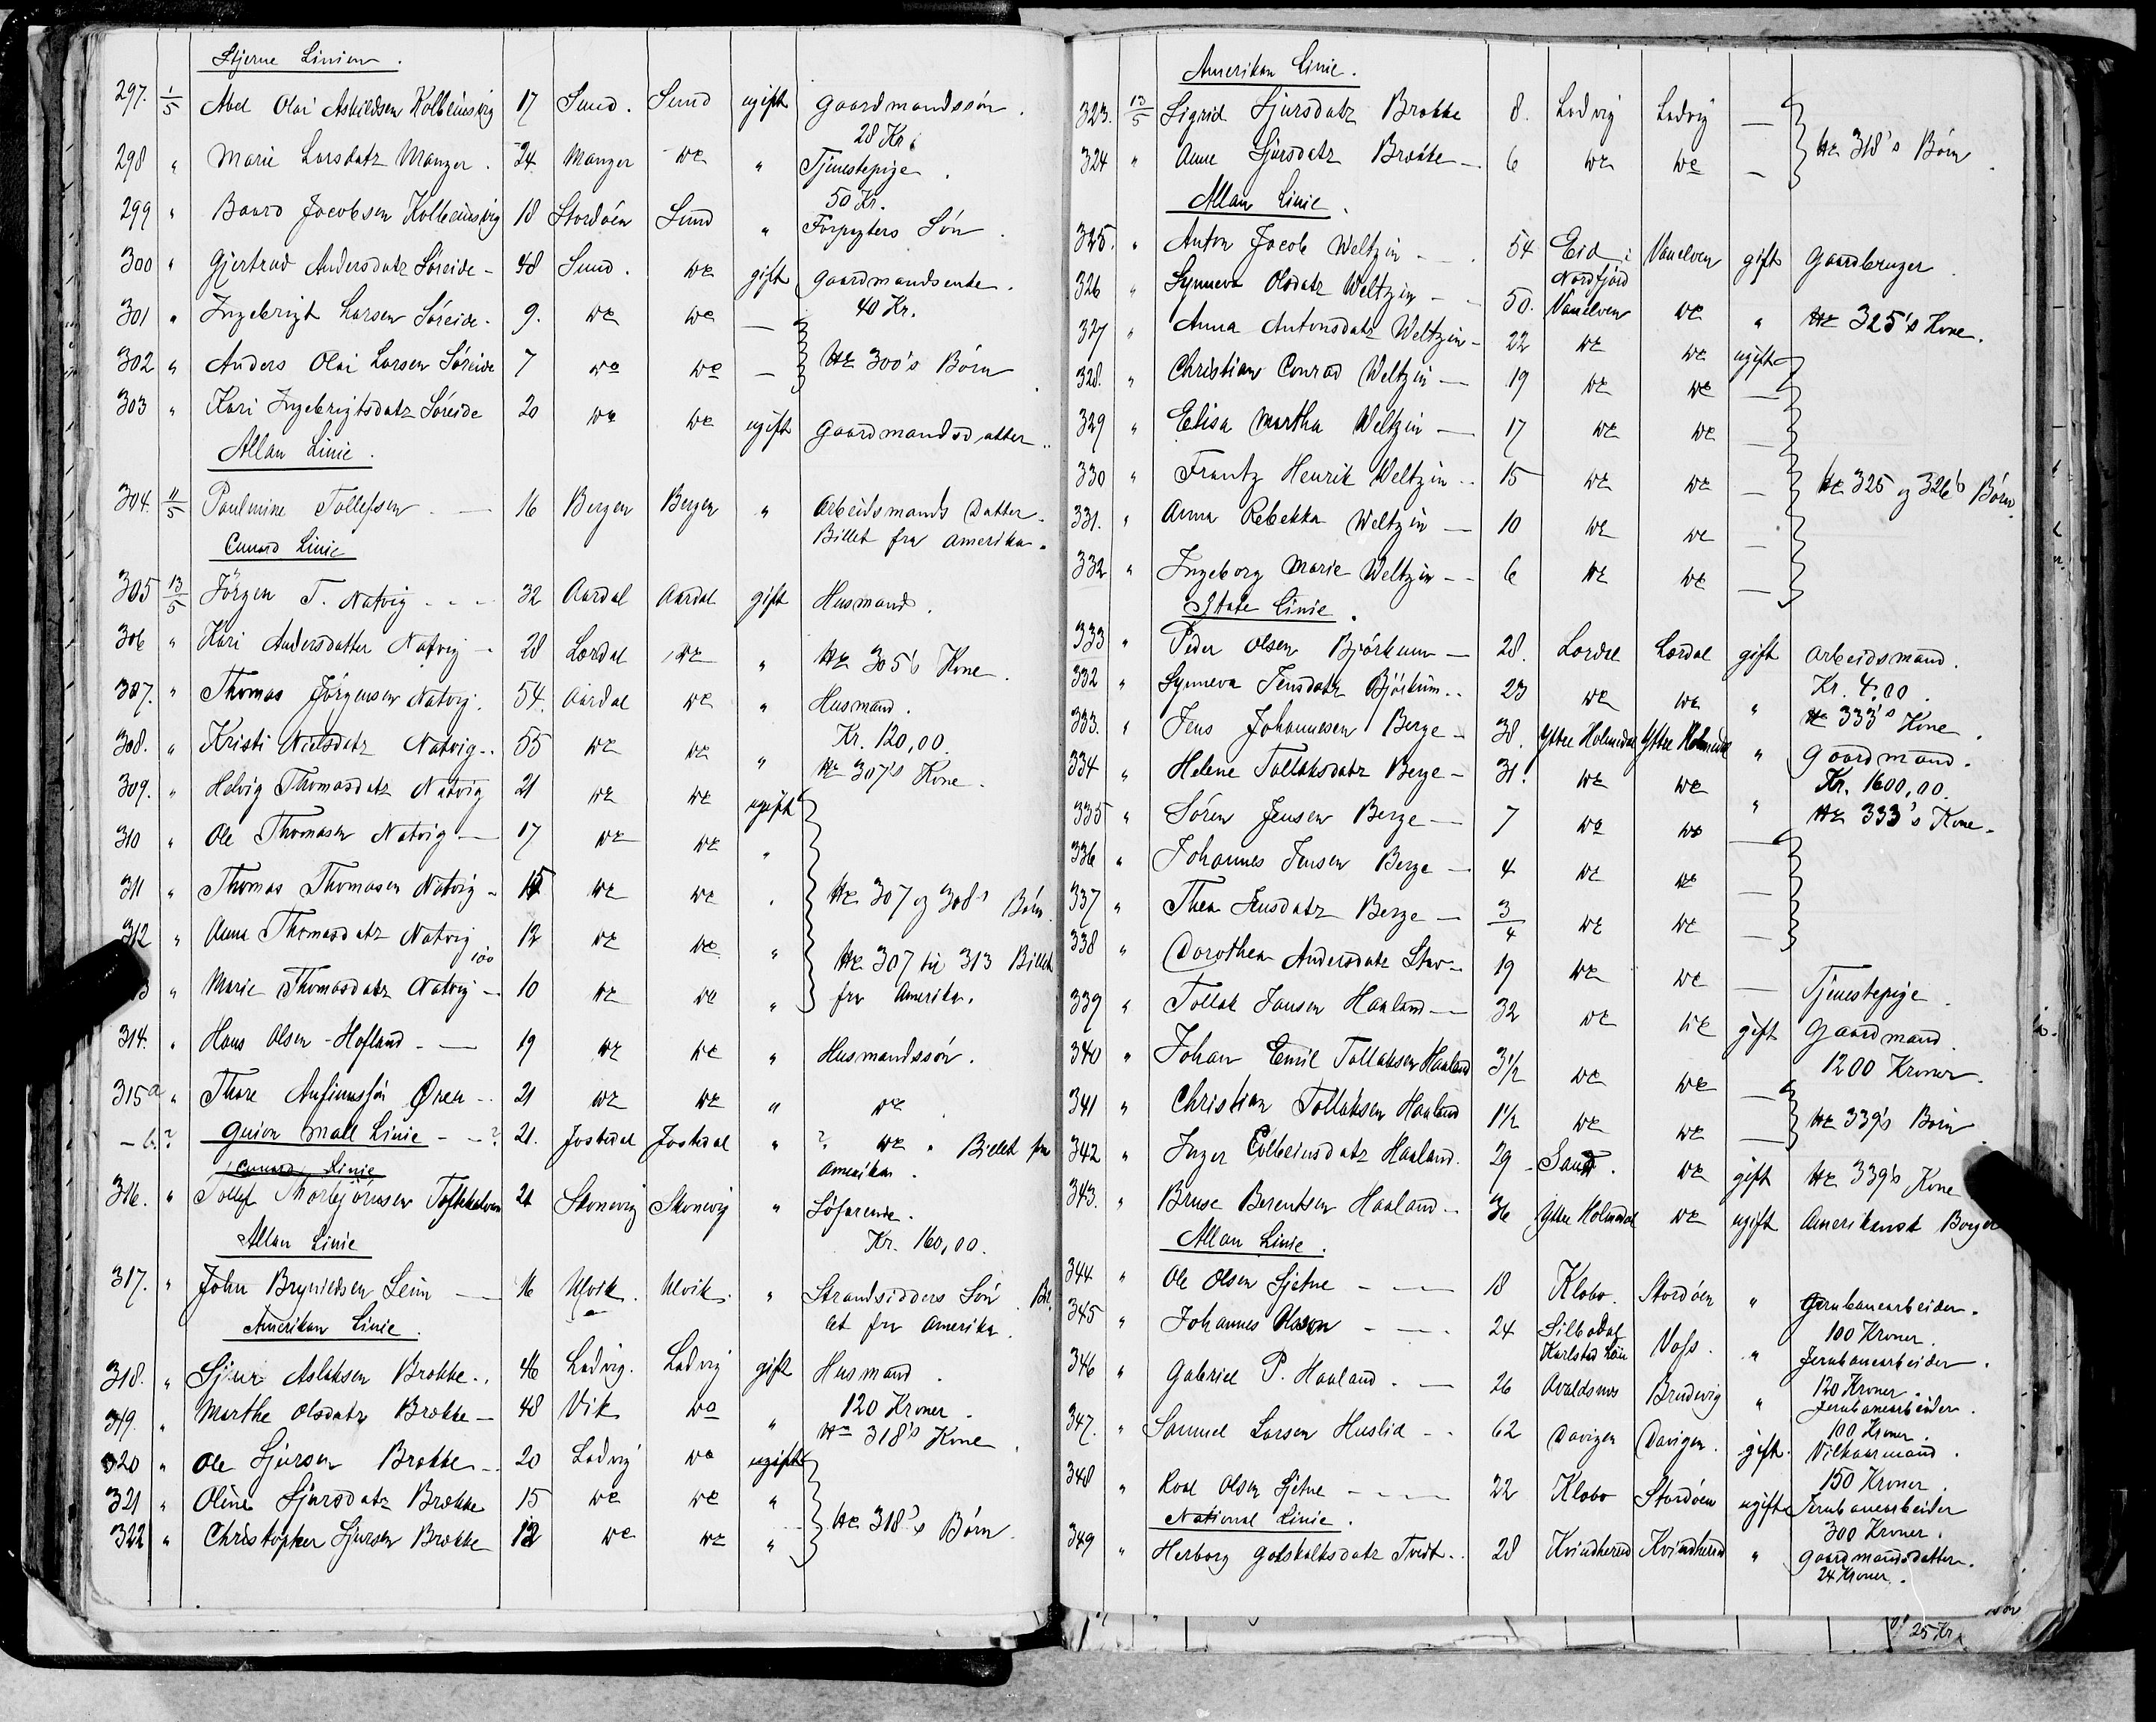 Stjerne Linien.
297. 1/5 Abel Olai Askildsen Kolbeinsvig 17 Sund. Sund ugift Gaardmandssøn.
28 Kr.
298 " Marie Larsdatr Manger. 24 Manger do " Tjenestepige.
50 Kr.
299 " Baard Jacobsen Kolbeinsvig 18 Stordøen Sund " Forpagters Søn.
300 " Gjertrud Andersdatr Søreide - 48 Sund. do gift Gaardmandsenke.
40 Kr.
301 " Ingebrigt Larsen Søreide - 9. do do —
302 " Anders Olai Larsen Søreide 7 do do — No 300's Børn
303 " Kari Ingebrigtsdatr Søreide 20 do do ugift Gaardmandsdatter.
Allan Linie.
304. 11/5 Paulmine Tollefsen — 16 Bergen Bergen " Arbeidsmands Datter.
Billet fra Amerika.
Cunard Linie
305 13/5 Jörgen T. Natvig - - - 32 Aardal Aardal gift Husmand.
306 " Kari Andersdatter Natvig - 28 Lærdal do " No 305's Kone.
307. " Thomas Jörgensen Natvig. 54. Aardal do " Husmand.
Kr. 120,00.
308. " Kristi Nielsdatr Natvig.. 55 do do " No 307's Kone.
309. " Helvig Thomasdatr Natvig 21 do do ugift
310 " Ole Thomasen Natvig — 17 do do "
311 " Thomas Thomasen Natvig - 15 do do " No 307 og 308's Børn.
312 " Anna Thomasdatr Natvig 12 do do " No 307 til 313 Billet
100
" Marie Thomasdatr Natvig - 10 do do " fra Amerika.
314. " Hans Olsen Hofland - — 19 do do " Husmandssøn.
315a " Thore Anfinnssøn Øren - 21 do do " do.
- b. ? Guion Mall Linie - - ? 21. Jostedal Jostedal " ? do " Billet fra
Amerika.
Cunard Linie
316. " Tollef Thorbjørnsen 21 Skonevig Skonevig " Søfarende.
Kr. 160,00.
Allan Linie
317. " John Brynildsen Leim — 16 Ulvik. Ulvik. " Strandsidders Søn. Bil
let fra Amerika.
Amerikan Linie.
318. " Sjur Aslaksen Brække.. 46 Ladvig. Ladvig gift Husmand.
120 Kroner.
319. " Marthe Olsdatr Brække - 48 Vik do " No 318's Kone.
320 " Ole Sjursen Brække - 20 Ladvig do ugift
321 " Oline Sjursdatr Brække 15 do do " No 318's Børn.
322 " Christopher Sjursen Brække 12 do do "
Amerikan Linie.
323. 13/5 Sigrid Sjursdatr Brække 8. Ladvig Ladvig — No 318's Børn
324 " Anne Sjursdatr Brække - 6 do do —
Allan Linie.
325. " Anton Jacob Weltzin - . 54 Eid i Nordfjord Vanelven gift Gaardbruger.
326 " Synneva Olsdatr Weltzin - - 50. Vanelven do " No 325's Kone.
327 " Anna Antonsdatr Weltzin - 22 do do ugift
328. " Christian Conrad Weltzin — 19 do do —
329 " Elisa Martha Weltzin — 17 do do —
330 " Frantz Henrik Weltzin .. 15 do do — No 325 og 326's Børn.
331. " Anna Rebekka Weltzin — 10 do do —
332 " Ingeborg Marie Weltzin - - 6 do do —
State Linie.
333 " Peder Olsen Bjørkum — 28. Lærdal Lærdal gift Arbeidsmand.
Kr. 4,00.
332 " Synneva Jensdatr Bjørkum.. 23 do do " No 333's Kone.
333. " Jens Johannesen Berge - 38. Yttre Holmedal Yttre Holmedal " Gaardmand.
Kr. 1600,00.
334 " Helene Tollaksdatr Berge - 31. do do " No 333's Kone.
335 " Søren Jensen Berge — 7 do do —
336 " Johannes Jensen Berge — 4 do do —
337 " Thea Jensdatr Berge — 3/4 do do —
338 " Dorothea Andersdatr - 19 do do — Tjenestepige.
339 " Tollak Jansen Haaland — 32 do do gift Gaardmand.
1200 Kroner.
340 " Johan Emil Tollaksen Haaland 3 1/2 do do —
341 " Christian Tollaksen Haaland 1 1/2 do do — No 339's Børn
342 " Inger Colbeinsdatr Haaland. 29 Sand. do gift No 339's Kone
343. " Bruse Berentsen Haaland.. 36 Yttre Holmedal do ugift Amerikansk Borger
Allan Linie.
344 " Ole Olsen Sjetne - — 18 Klæbo. Stordøen " Jernbanearbeider.
100 Kroner.
345 " Johannes Olsson - — 24 Silbodal Karlstad Län Voss. " Jernbanearbeider.
120 Kroner.
346 " Gabriel P. Haaland. — 26 Avaldsnes Bruvig " Jernbanearbeider.
100 Kroner.
347. " Samuel Larsen Huslid - - 62 Davigen Davigen. gift. Vilkaarmand.
150 Kroner.
348 " Roal Olsen Sjetne - - - - 22 Klæbo Stordøen ugift Jernbanearbeider
300 Kroner.
National Linie.
349 " Herborg Gotskalksdatr Tvedt.. 28 Kvindherred Kvindherred " Gaardmandsdatter.
24 Kroner.
25 Kr